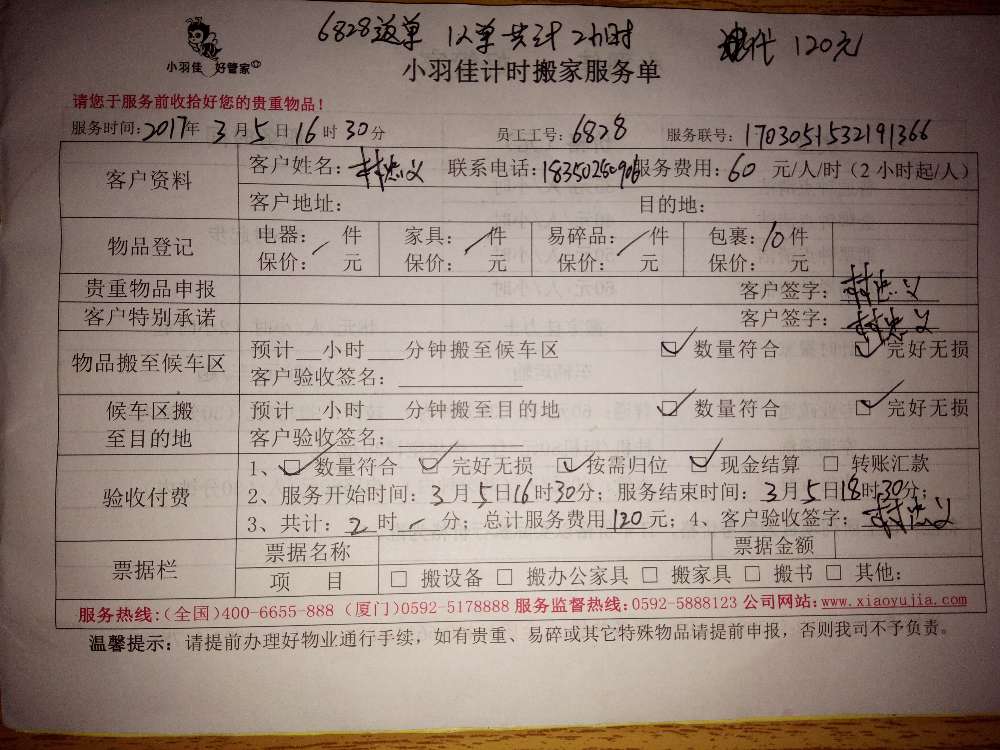 6828返单 1人单共计2小时 120元
小羽佳 好管家
小羽佳计时搬家服务单
请您于服务前收拾好您的贵重物品!
服务时间:2017年3月5日16时30分 员工工号:6828 服务联号:1703051532191366
客户资料 客户姓名: 联系电话: 服务费用:60元/人/时(2小时起/人)
客户地址: 目的地:
物品登记 电器:/件 家具:/件 易碎品:/件 包裹:10件
保价: 元 保价: 元 保价: 元 保价: 元
贵重物品申报 客户签字:
客户特别承诺 客户签字:
物品搬至候车区 预计__小时___分钟搬至候车区 ☑数量符合 ☑完好无损
客户验收签名:
候车区搬至目的地 预计__小时___分钟搬至目的地 ☑数量符合 ☑完好无损
客户验收签名:
验收付费 1、☑数量符合 ☑完好无损 ☑按需归位 ☑现金结算 □转账汇款
2、服务开始时间:3月5日16时30分;服务结束时间:3月5日18时30分;
3、共计:2时-分;总计服务费用120元;4、客户验收签字:
票据栏 票据名称 票据金额
项 目 □搬设备 □搬办公家具 □搬家具 □搬书 □其他:
服务热线:(全国)400-6655-888 (厦门)0592-5178888 服务监督热线:0592-5888123 公司网站:www.xiaoyujia.com
温馨提示:请提前办理好物业通行手续,如有贵重、易碎或其它特殊物品请提前申报,否则我司不予负责。